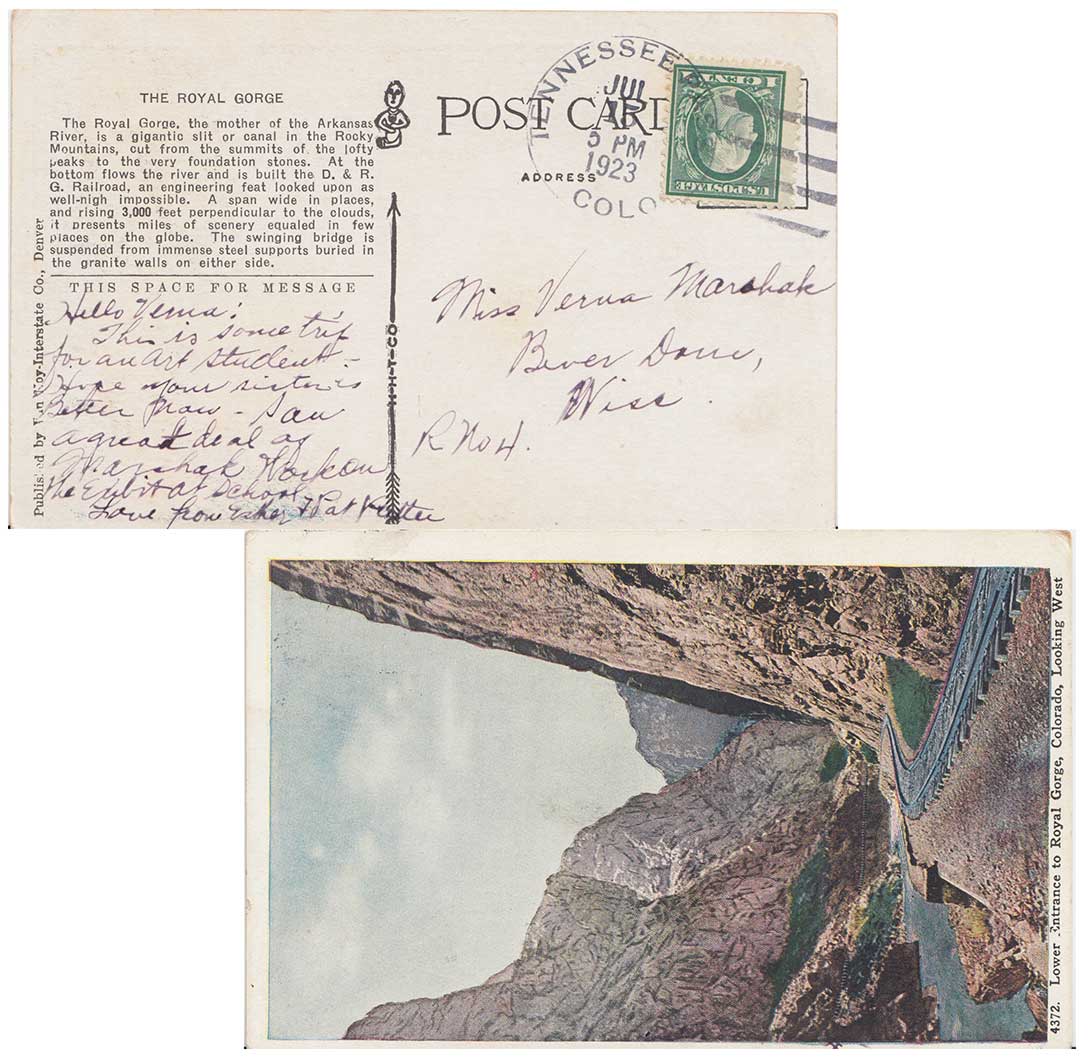 THE ROYAL GORGE
The Royal Gorge, the mother of the Arkansas
River, is a gigantic slit or canal in the Rocky
Mountains, cut from the summits of the lofty
peaks to the very foundation stones. At the
bottom flows the river and is built the D. & R.
G. Railroad, an engineering feat looked upon as
well-nigh impossible. A span wide in places,
and rising 3,000 feet perpendicular to the clouds,
it presents miles of scenery equaled in few
places on the globe. The swinging bridge is
suspended from immense steel supports buried in
the granite walls on either side.
THIS SPACE FOR MESSAGE
Hello Verna:
This is some trip
for an Art Student -
Hope your sister is
Better now - Saw
a great deal of
Marshak
the Exibit at School
Love from
Published by Van Noy-Interstate Co., Denver
H-H-T-CO
POST CARD
ADDRESS
TENNESSEE
JUL
5 PM
1923
COLO
1 CENT 1
U.S. POSTAGE
Miss Verna Marshak
Bever Dam,
Wiss.
R No 4.
4372. Lower Entrance to Royal Gorge, Colorado, Looking West